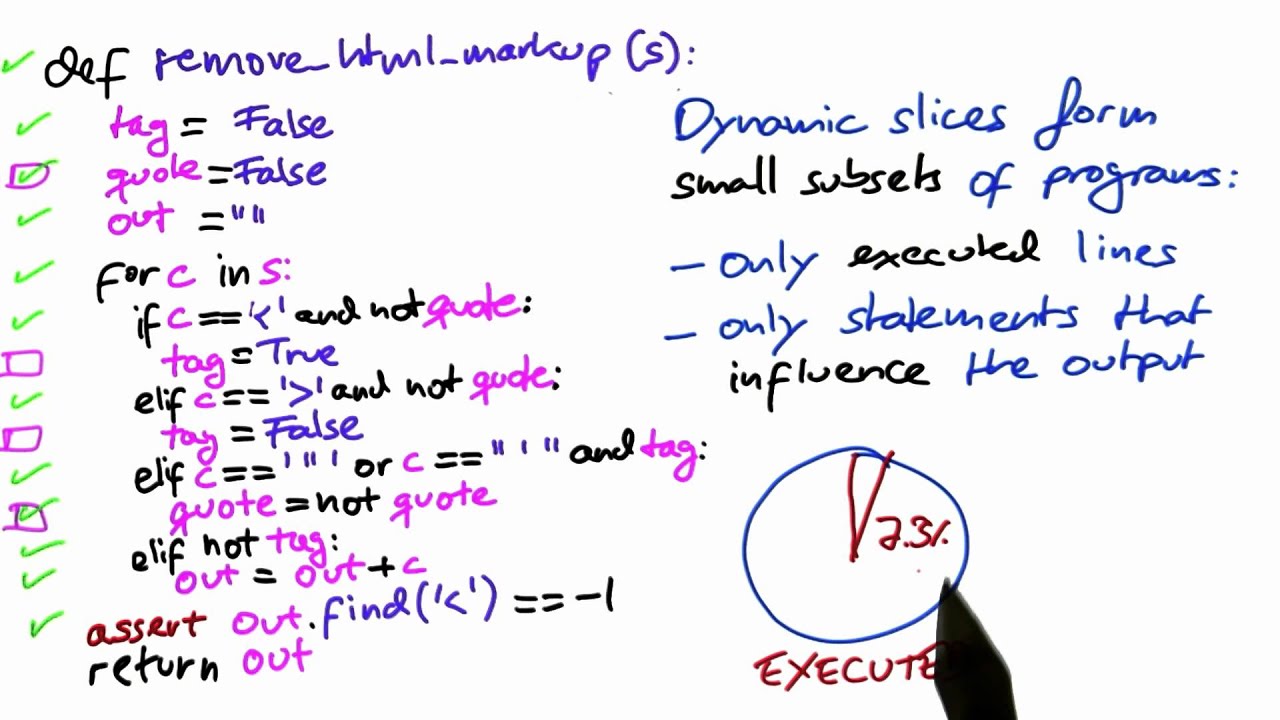 def remove_html_markup (s):
tag = False
quote = False
out = ""
for c in s:
if c == '<' and not quote:
tag = True
elif c == '>' and not quote:
tag = False
elif c == '"' or c == "'" and tag:
quote = not quote
elif not tag:
out = out + c
assert out.find('<') == -1
return out
Dynamic slices form
small subsets of programs:
- only executed lines
- only statements that
influence the output
EXECUTE